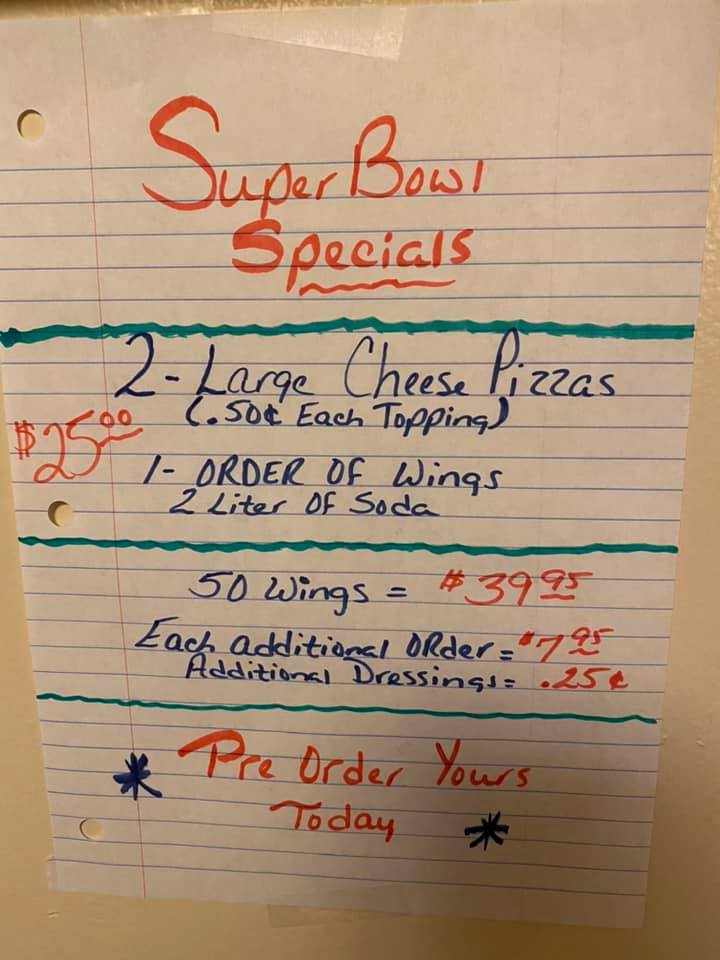 Super Bowl
Specials
2- Large Cheese Pizzas
(.50¢ Each Topping)
$25.00
1- ORDER OF Wings
2 Liter OF Soda
50 Wings = $39.95
Each additional ORder = $7.95
Additional Dressings = .25¢
Pre Order Yours
Today